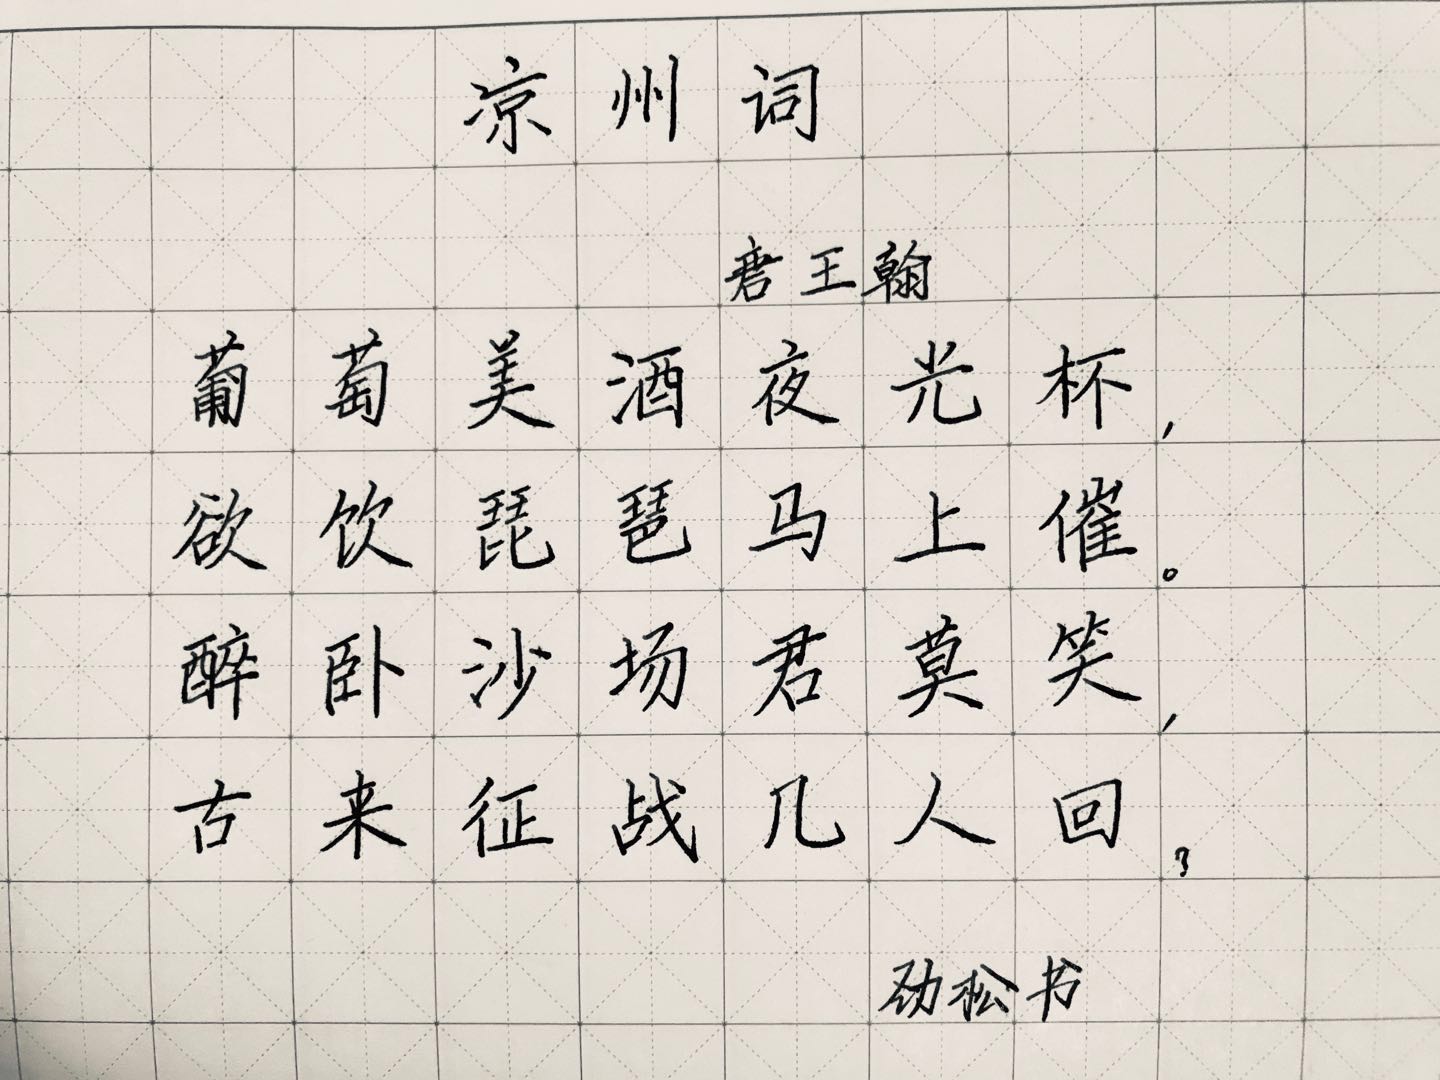 凉州词
唐王翰
葡萄美酒夜光杯,
欲饮琵琶马上催。
醉卧沙场君莫笑,
古来征战几人回?
劲松书